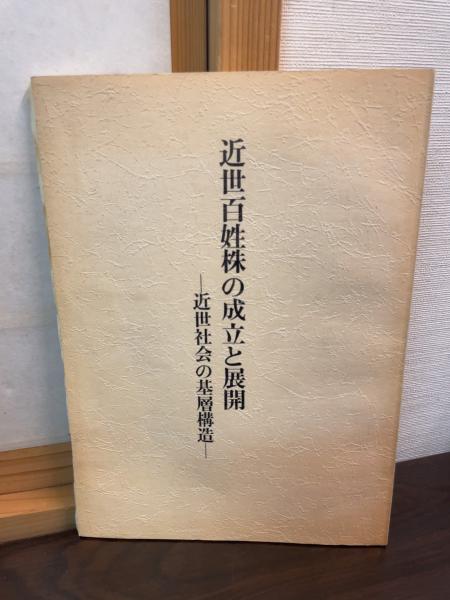 近世百姓株の成立と展開
―近世社会の基層構造―